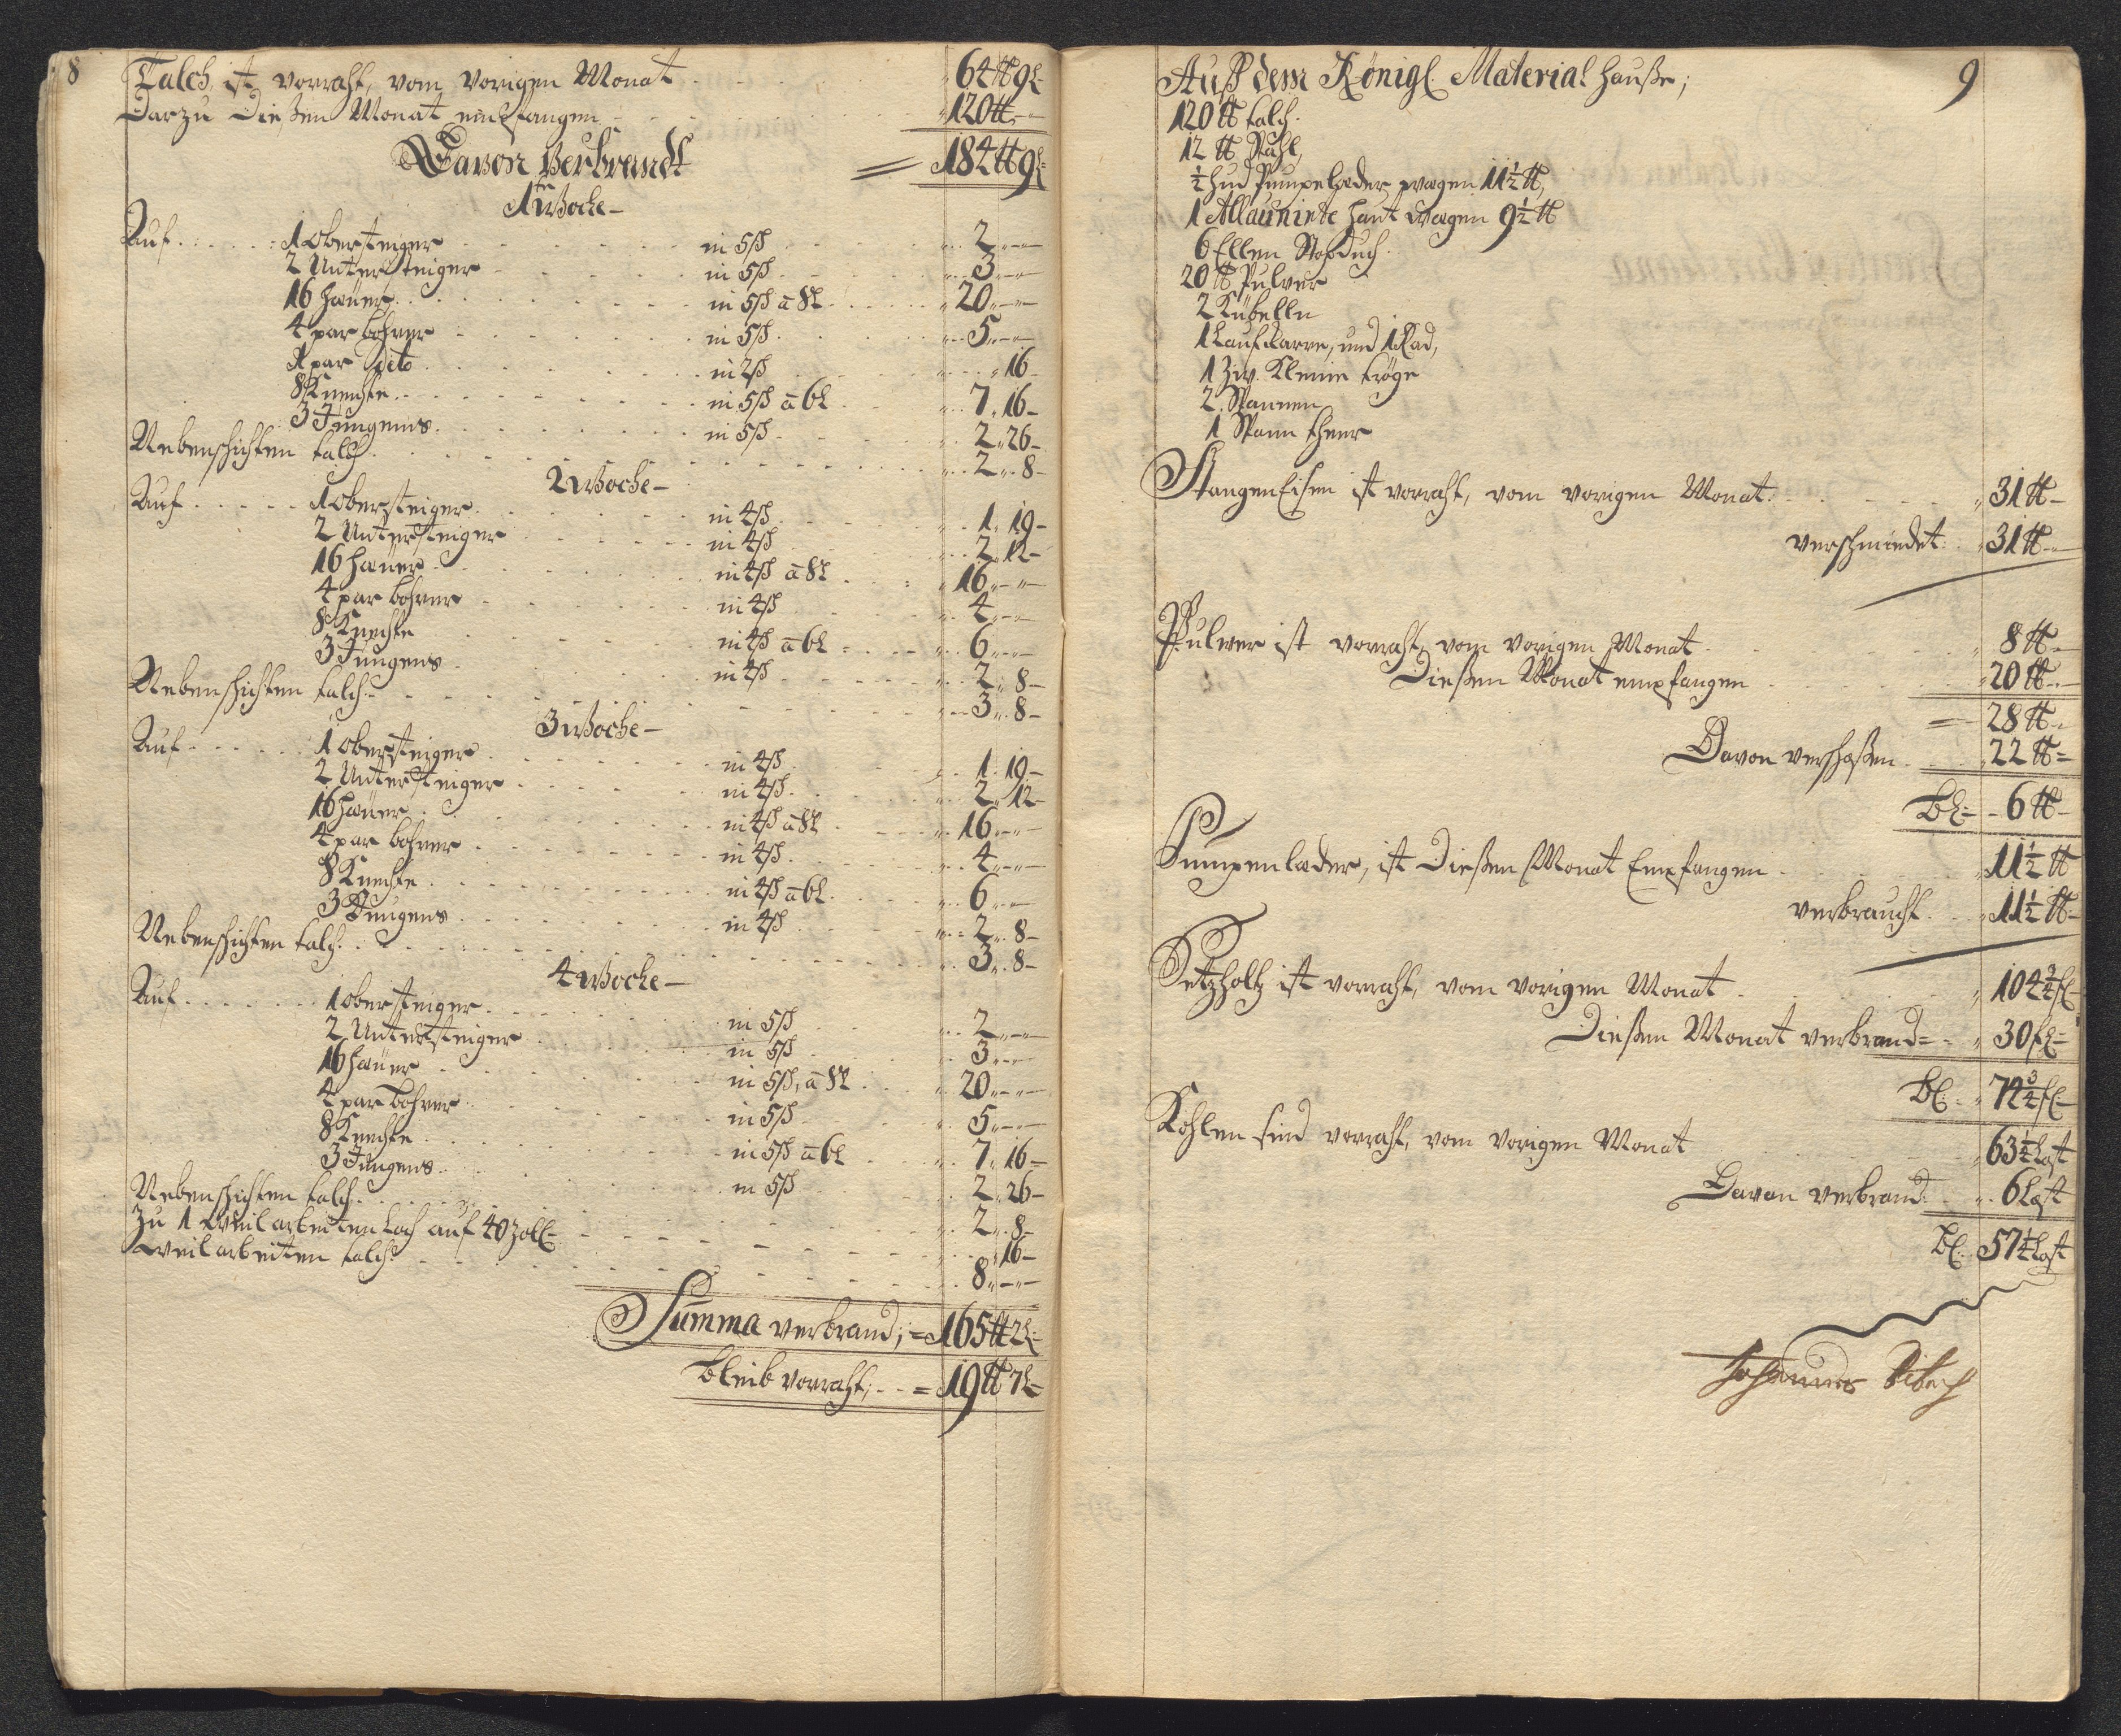 8
Talch ist vorraht, vom vorigen Monat 64 ℔ 9 L
Darzu Dießen Monat empfangen 120 ℔
Davon Verbrendt = 184 ℔ 9 L
1te Woche
Auf 1 Obersteiger in 5 ß 2
2 Untersteiger in 5 ß 3
16 Haüer in 5 ß a 8 L 20
4 par bohrer in 5 ß 5
1 par dito in 2 ß 16
8 Knechte in 5 ß a 6 L 7 16
3 Jungens in 5 ß 2 26
Nebenschichten talch 2 8
2 Woche
Auf 1 Obersteiger in 4 ß 1 19
2 Untersteiger in 4 ß 2 12
16 Haüer in 4 ß a 8 L 16
4 par bohrer in 4 ß 4
8 Knechte in 4 ß a 6 L 6
3 Jungens in 4 ß 2 8
Nebenschichten talch 3 8
3 Woche
Auf 1 Obersteiger in 4 ß 1 19
2 Untersteiger in 4 ß 2 12
16 Haüer in 4 ß a 8 L 16
4 par bohrer in 4 ß 4
8 Knechte in 4 ß a 6 L 6
3 Jungens in 4 ß 2 8
Nebenschichten talch 3 8
4 Woche
Auf 1 Obersteiger in 5 ß 2
2 Untersteiger in 5 ß 3
16 Haüer in 5 ß, a 8 L 20
4 par bohrer in 5 ß 5
8 Knechte in 5 ß a 6 L 7 16
3 Jungens in 5 ß 2 26
Nebenschichten talch 2 8
Zu 1 Weilarbeiten Loch auf 40 Zoll 16
Weilarbeiten talch 8
Summa verbrand; = 165 ℔ 2 L
bleib vorraht; = 19 ℔ 7 L
9
Auß dem Königl Material Hauße;
120 ℔ talch
12 ℔ Stahl,
½ Hud Pumpeleder wagen 11½ ℔,
1 Allaunirte Haut wagen 9½ ℔
6 Ellen Stopduch
20 ℔ Pulver
2 Kübelln
1 Laufkarre, und 1 Rad,
1 Zw. Kleine tröge
2 Spannen
1 Spann theer
Stangen Eisen ist vorraht, vom vorigen Monat 31 ℔
verschmiedet 31 ℔
Pulver ist vorraht, vom vorigen Monat 8 ℔
Dießen Monat empfangen 20 ℔
= 28 ℔
Davon verschoßen 22 ℔
Bl: 6 ℔
Pumpenleder, ist Dießen Monat Empfangen 11½ ℔
verbraucht 11½ ℔
Setzholtz ist vorraht, vom vorigen Monat 104¾ fl
Dießen Monat verbrand 30 fl
Bl: 74¾ fl
Kohlen sind vorraht, vom vorigen Monat 63¼ Last
Davon verbrand 6 Last
Bl: 57¼ Last
Johannes